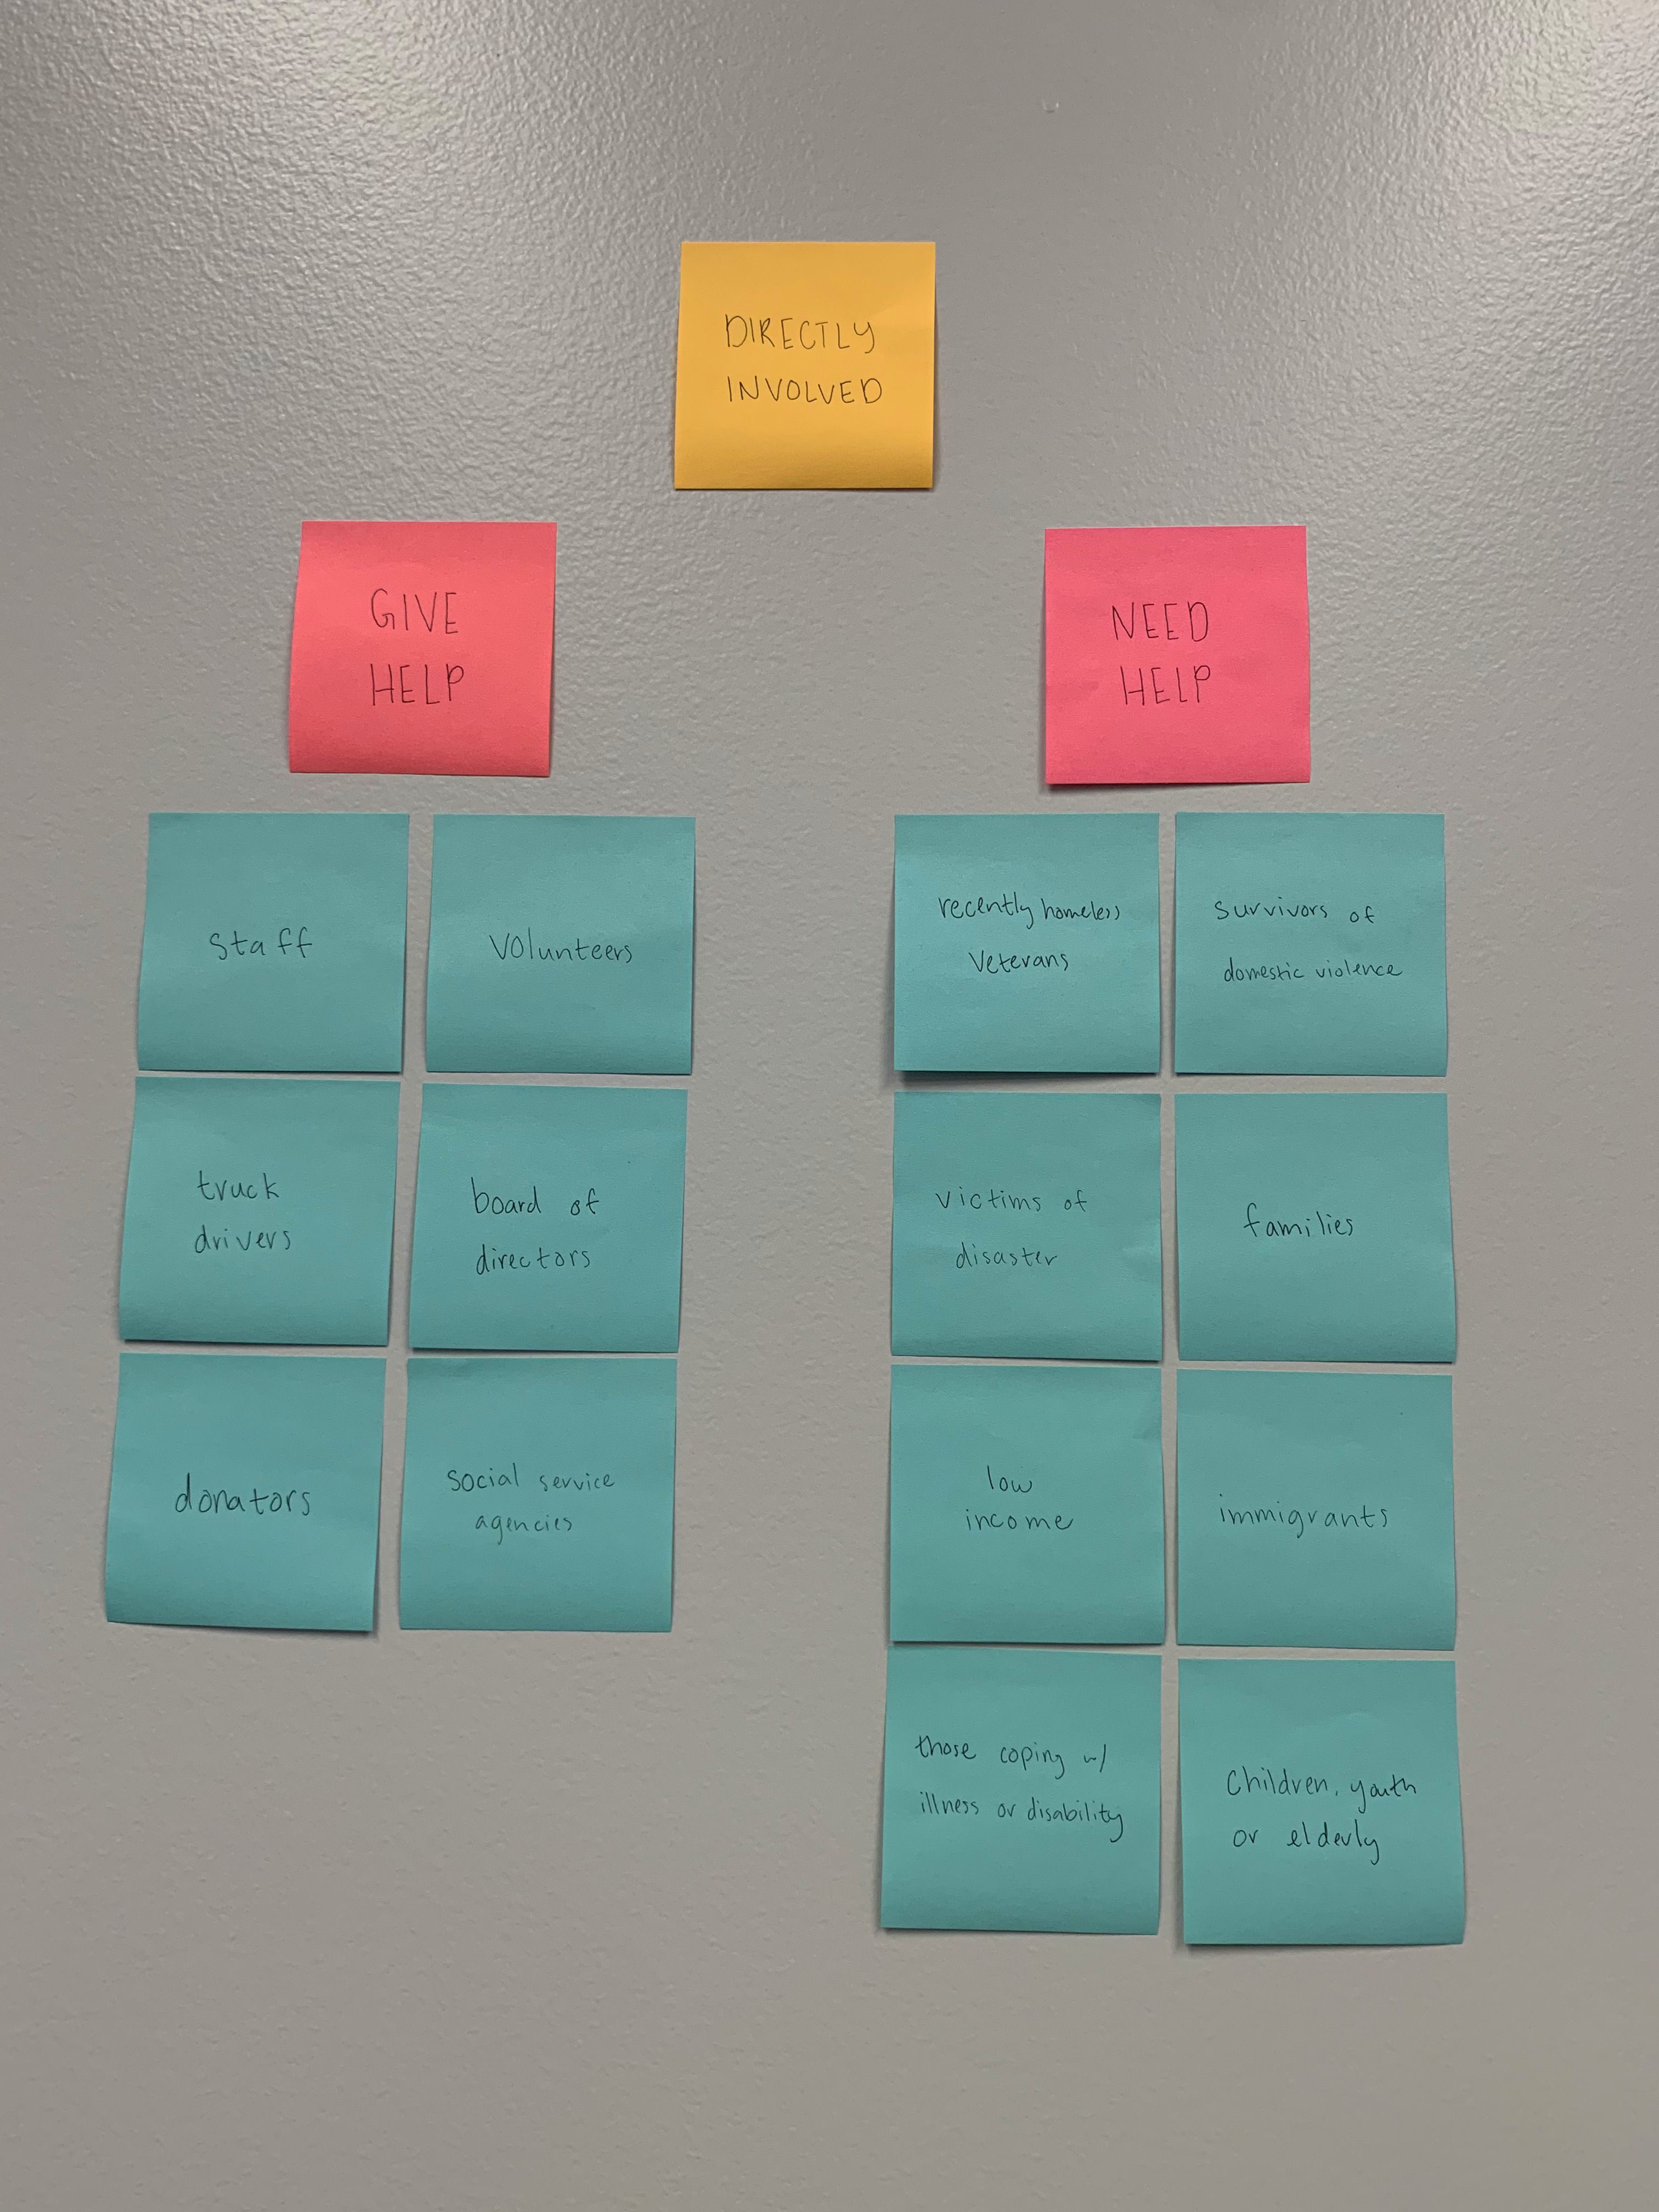 DIRECTLY
INVOLVED
GIVE
HELP
staff
volunteers
truck
drivers
board of
directors
donators
social service
agencies
NEED
HELP
recently homeless
veterans
survivors of
domestic violence
victims of
disaster
families
low
income
immigrants
those coping w/
illness or disability
children, youth
or elderly